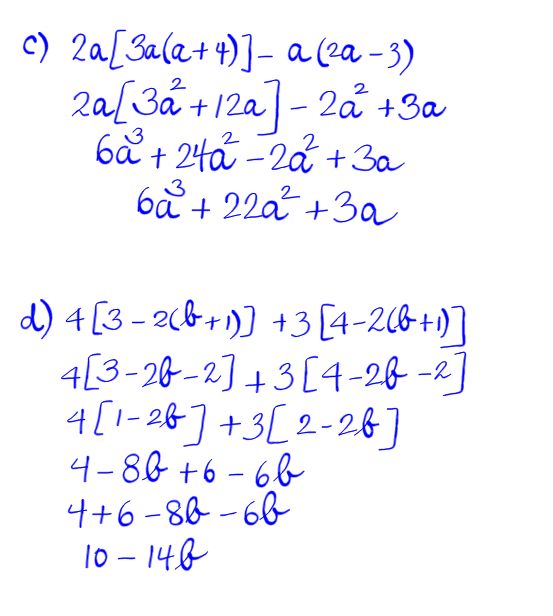 c) 2a[3a(a+4)] - a(2a-3)
2a[3a²+12a] - 2a²+3a
6a³+24a²-2a²+3a
6a³+22a²+3a
d) 4[3-2(b+1)] +3[4-2(b+1)]
4[3-2b-2]+3[4-2b-2]
4[1-2b]+3[2-2b]
4-8b+6-6b
4+6-8b-6b
10-14b